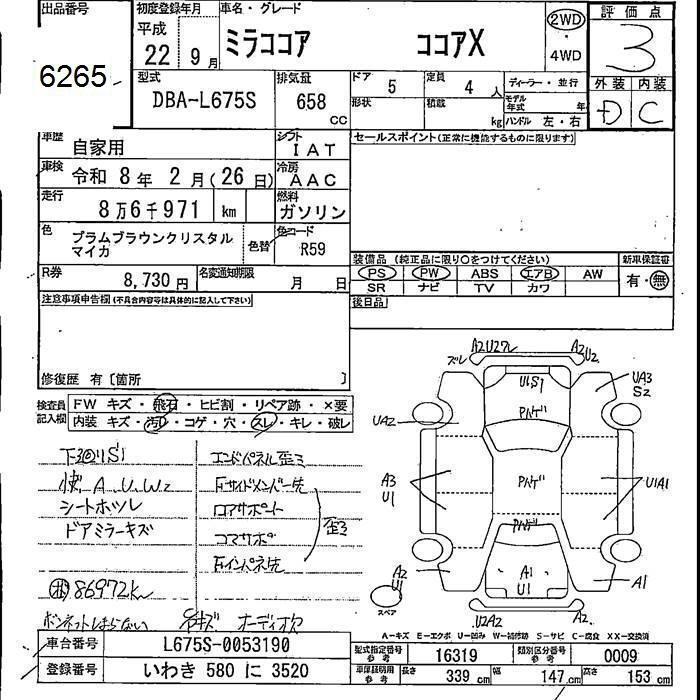 出品番号
6265
初度登録年月
平成
22 年 9 月
車名・グレード
ミラココア ココアX
2WD
・
4WD
評価点
3
外装 内装
D C
型式
DBA-L675S
排気量
658 cc
ドア 5
定員 4 人
ディーラー・並行
形状
積載 kg
モデル年式 年
ハンドル 左・右
車歴
自家用
シフト
IAT
セールスポイント(正常に機能するものに限ります)
車検
令和 8 年 2 月(26 日)
冷房
AAC
走行
8万6千971 km
燃料
ガソリン
色
プラムブラウンクリスタル
マイカ
色替
色コード
R59
装備品(純正品に限り○をつけてください)
新車保証書
PS PW ABS エアB AW
有・無
SR ナビ TV カワ
R券
8,730 円
名変通知期限
月 日
後日品
注意事項申告欄(不具合内容等は具体的に記入して下さい)
修復歴 有〔箇所 〕
検査員
記入欄
FW キズ・飛石・ヒビ割・リペア跡・×要
内装 キズ・汚れ・コゲ・穴・スレ・キレ・破レ
下廻りS1
A.U.W2
シートホツレ
ドアミラーキズ
86972k
ボンネットしまらない
オーディオ欠
エンドパネル歪ミ
Fサイドメンバー先
ロアサポート
コアサポ
Fインパネ先
歪ミ
A2U2ワレ
ズレ
A2
U2
U1S1
UA3
S2
PハゲUA2
Pハゲ
A3
U1
U1A1
Pハゲ
A2
U1
スペア
A1
U1
A1
U2A2
A2
A-キズ E-エクボ U-凹み W-補修跡 S-サビ C-腐食 XX-交換済
車台番号
L675S-0053190
登録番号
いわき 580 に 3520
型式指定番号
参考
16319
類別区分番号
参考
0009
車保証明用
参考
長さ 339 cm
幅 147 cm
高さ 153 cm